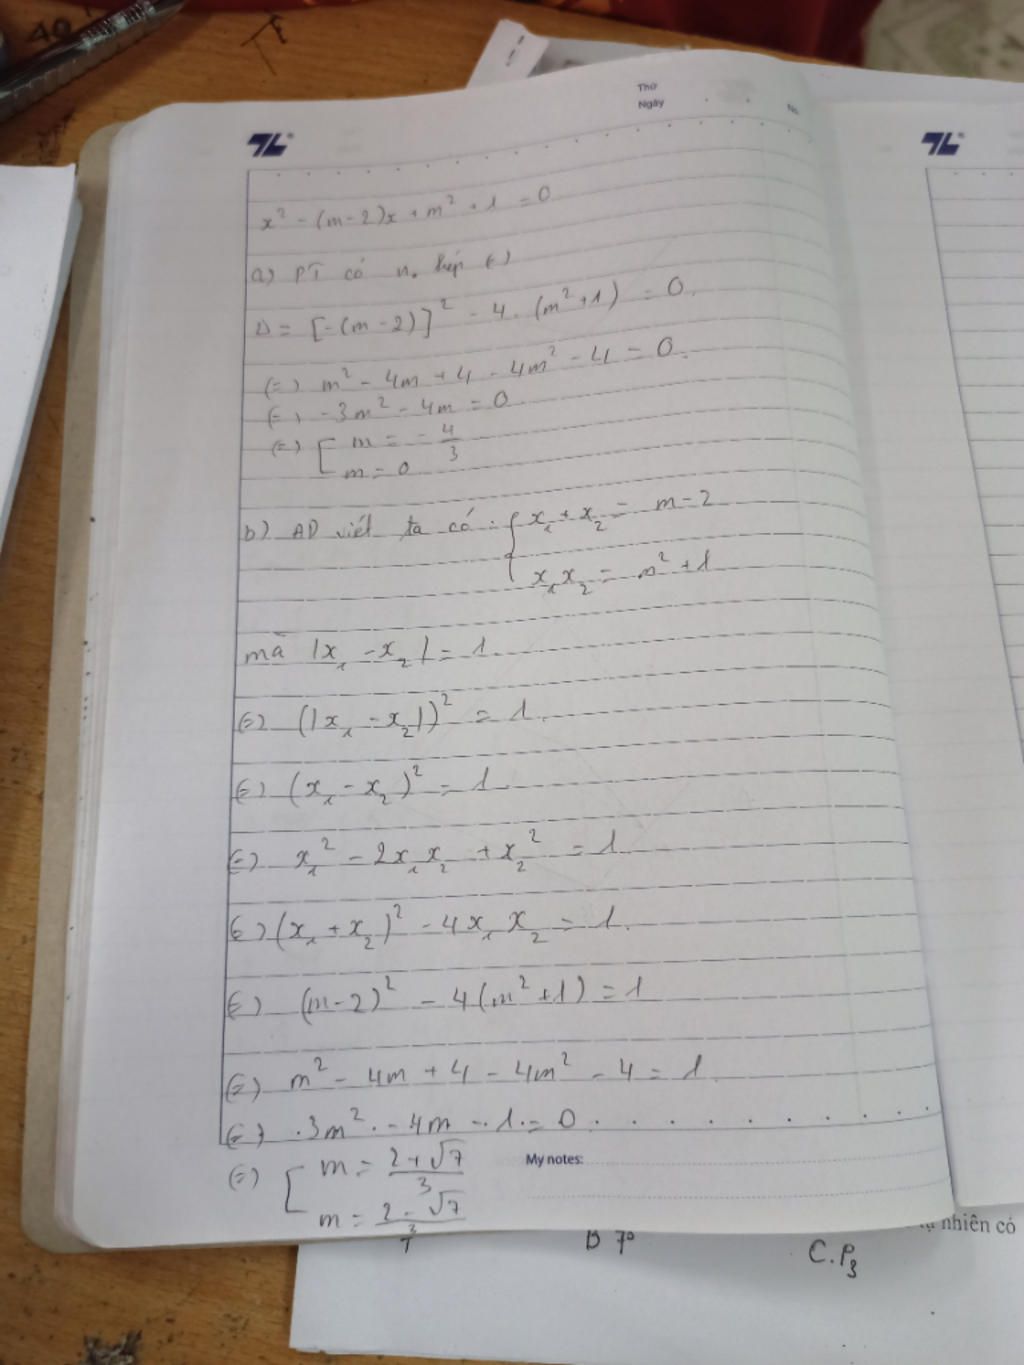 Thứ
Ngày
No
x² - (m-2)x + m² + 1 = 0
a) PT có n₀ kép (=)
Δ = [-(m-2)]² - 4.(m²+1) = 0.
(=) m² - 4m + 4 - 4m² - 4 = 0.
(=) -3m² - 4m = 0
(=) [ m = -4/3
m = 0
b) AD viét ta có : { x₁ + x₂ = m-2
x₁x₂ = m² + 1
mà |x₁ - x₂| = 1
(=) (|x₁ - x₂|)² = 1.
(=) (x₁ - x₂)² = 1
(=) x₁² - 2x₁x₂ + x₂² = 1
(=) (x₁ + x₂)² - 4x₁x₂ = 1.
(=) (m-2)² - 4(m²+1) = 1
(=) m² - 4m + 4 - 4m² - 4 = 1
(=) 3m² - 4m - 1 = 0
(=) [ m = (2+√7)/3
m = (2-√7)/3
My notes:
nhiên có
B 7°
C. P₃